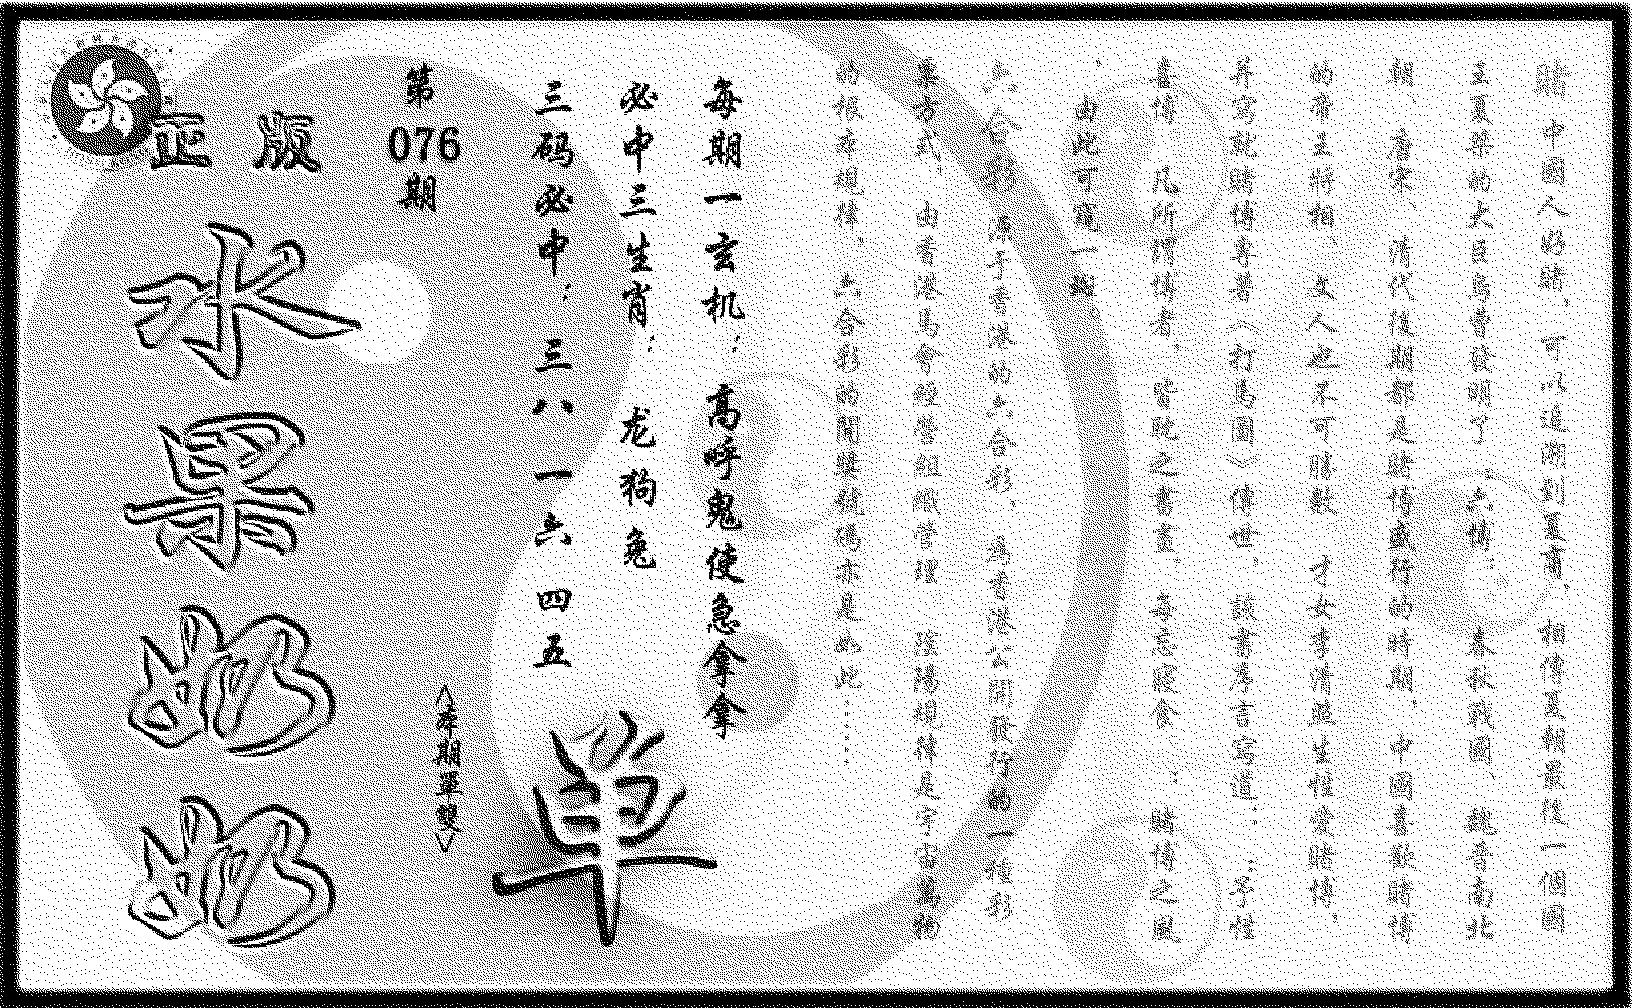 賭　中國人好賭，可以追溯到夏商，相傳夏朝最後一個國
王夏桀的大臣烏曹發明了“六博”。春秋戰國、魏晉南北
朝　唐宋　清代後期都是賭博盛行的時期。中國喜歡賭博
的帝王將相　文人也不可勝數　才女李清照生性愛賭博，
并寫就賭博專著（打馬圖）傳世。該書序言寫道：“予性
喜博　凡所謂博者，皆耽之晝夜　每忘寢食”。賭博之風
，由此可窺一斑
六合彩　源于香港的六合彩，為香港公開發行的一種彩
票方式，由香港馬會經營組織管理　陰陽規律是宇宙萬物
的根本規律，六合彩的開獎號碼亦是如此……
每期一玄机：高呼鬼使急拿拿
必中三生肖：龙狗兔
三码必中：三八 一六 四五
第
076
期
<本期單雙>
单
正版
水果奶奶